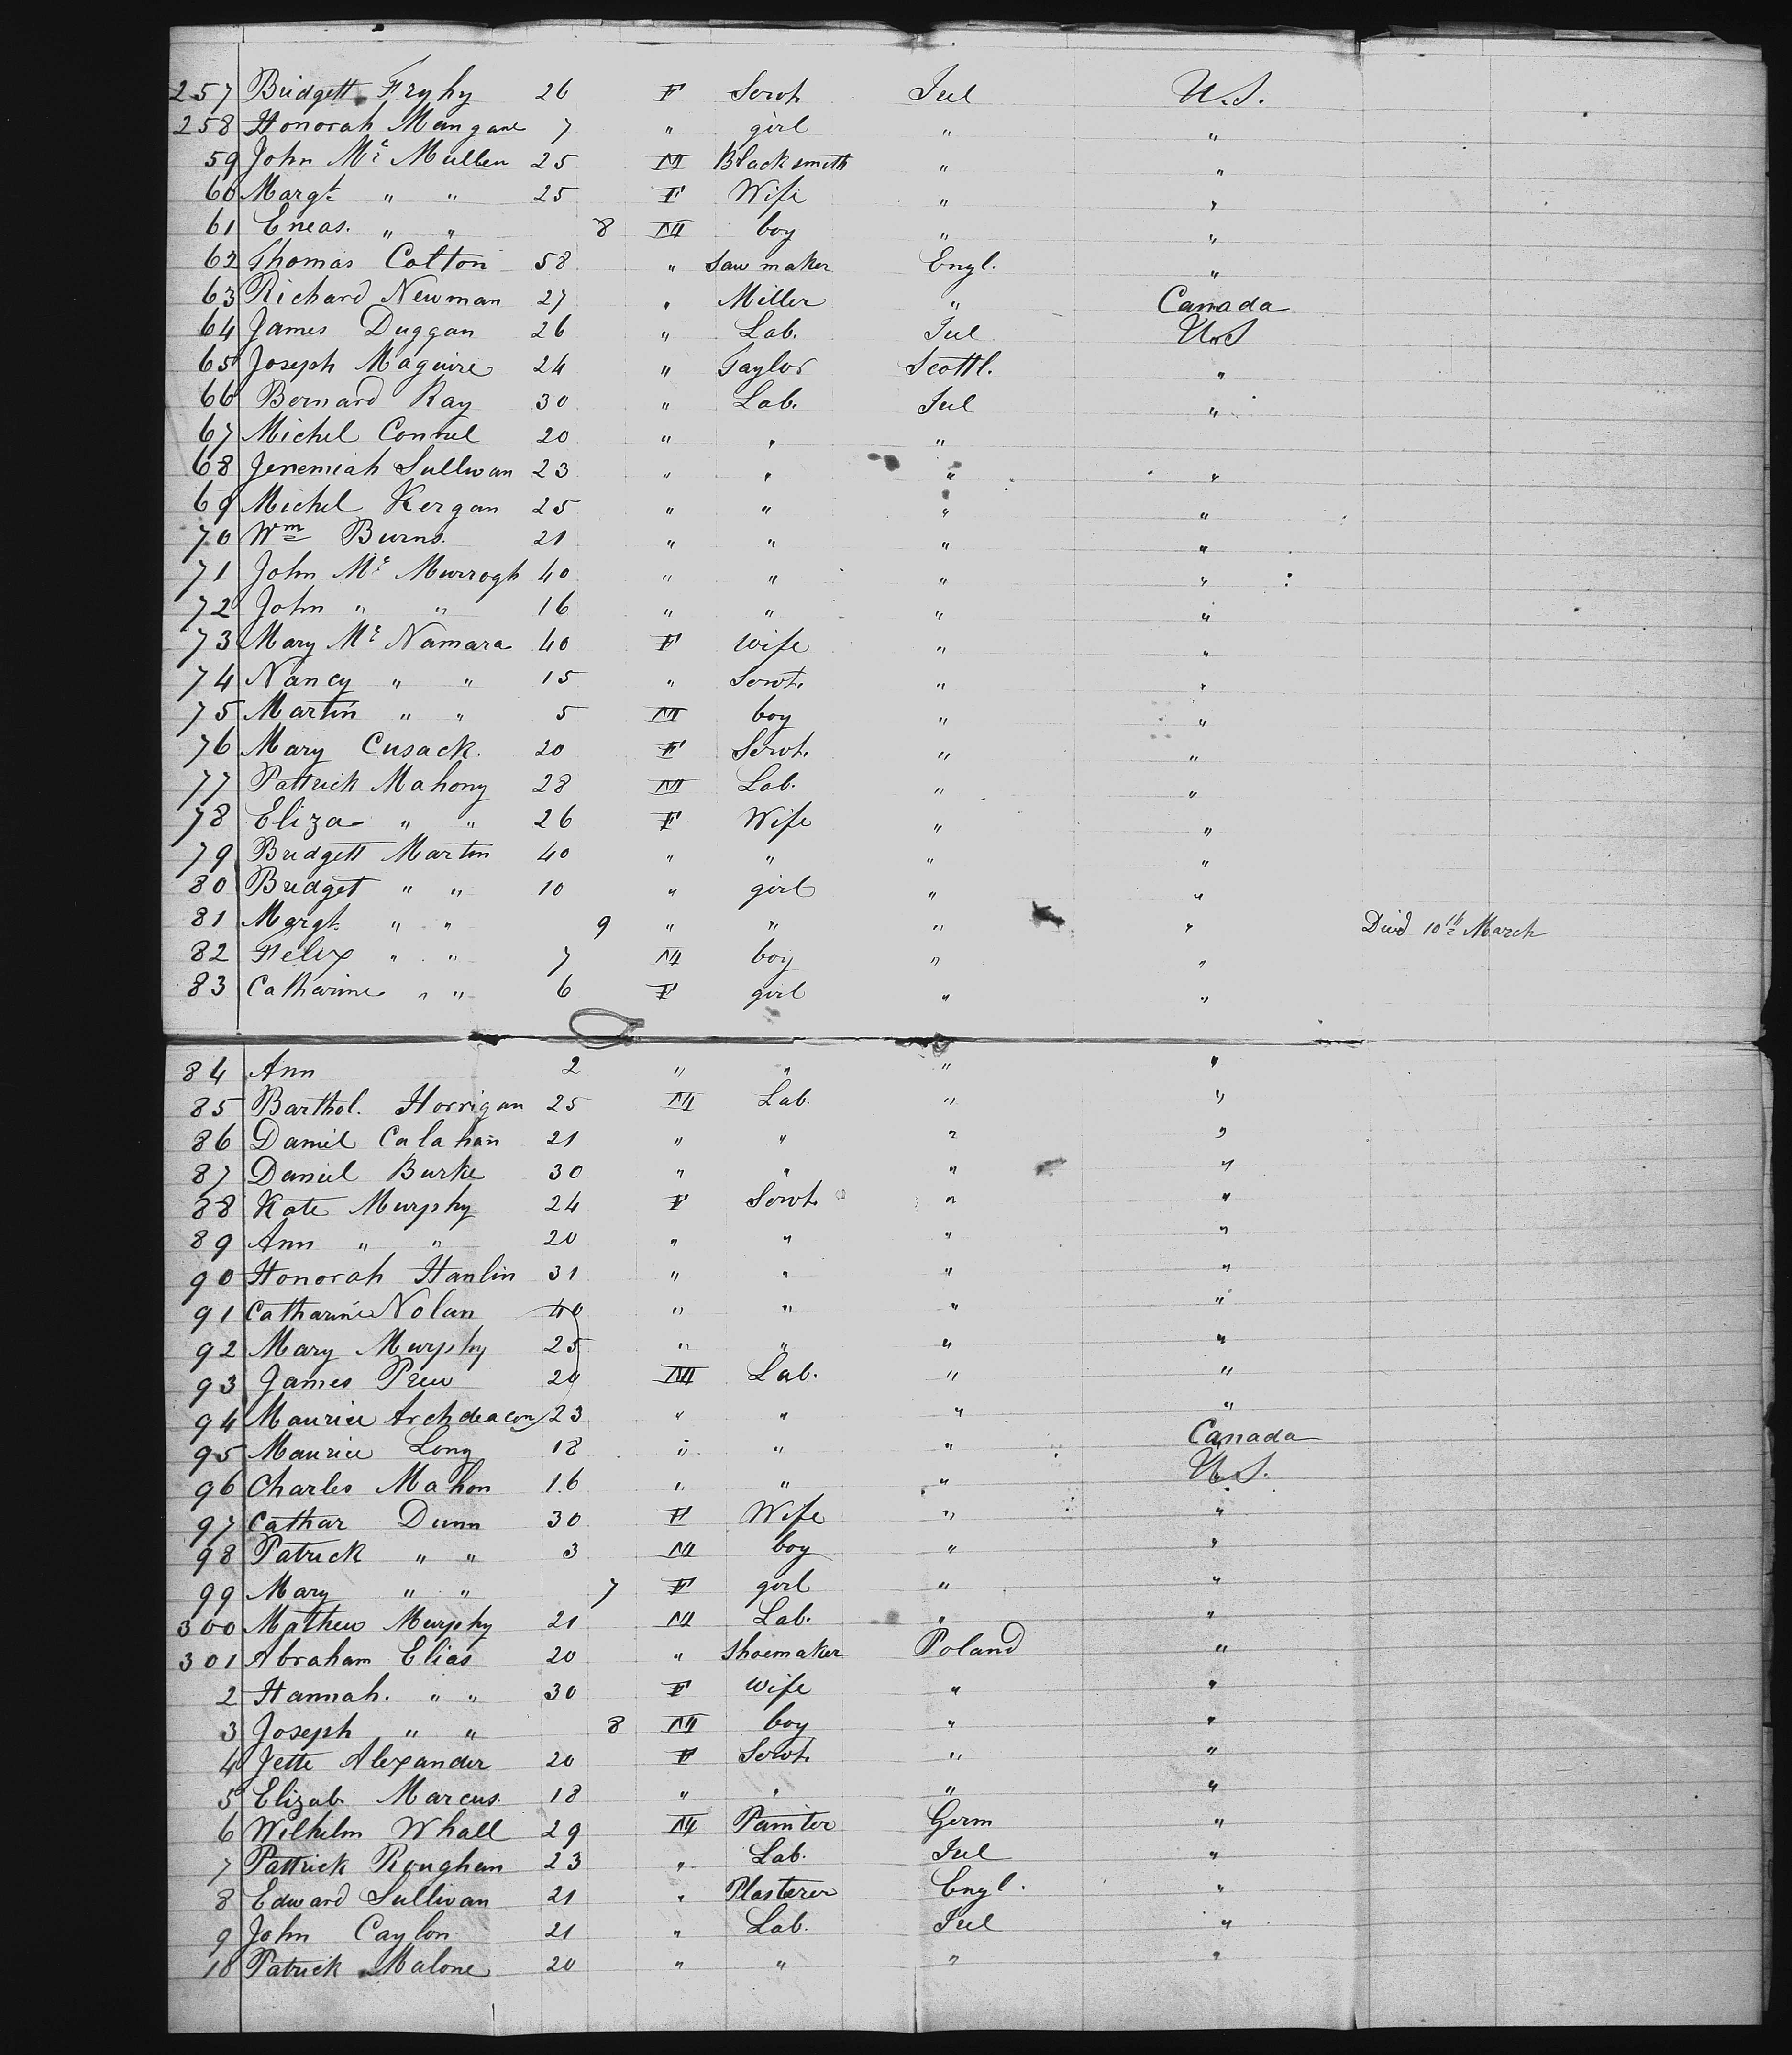 257 Bridgett Fryhy 26 F Servt. Irel U.S.
258 Honorah Mangane 7 " girl " "
59 John Mc Mullen 25 M Blacksmith " "
60 Margt. " " 25 F Wife " "
61 Eneas. " " 8 M boy " "
62 Thomas Colton 58 " Saw maker Engl. "
63 Richard Newman 27 " Miller " Canada
64 James Duggan 26 " Lab. Irel U.S
65 Joseph Maguire 24 " Taylor Scottl. "
66 Bernard Ray 30 " Lab. Irel "
67 Michel Connel 20 " " "
68 Jeremiah Sullivan 23 " " " "
69 Michel Kergan 25 " " " "
70 Wm Burns. 21 " " " "
71 John Mc Murrogh 40 " " " "
72 John " " 16 " " " "
73 Mary Mc Namara 40 F wife " "
74 Nancy " " 15 " Servt. " "
75 Martin " " 5 M boy " "
76 Mary Cusack. 20 F Servt. " "
77 Pattrick Mahony 28 M Lab. " "
78 Eliza " " 26 F Wife " "
79 Bridgett Martin 40 " " " "
80 Bridget " " 10 " girl " "
81 Margt. " " 9 " " " " Died 10th March
82 Felix " " 7 M boy " "
83 Catharine " " 6 F girl " "
84 Ann 2 " " " "
85 Barthol. Horrigan 25 M Lab. " "
86 Daniel Calahan 21 " " " "
87 Daniel Burke 30 " " " "
88 Kate Murphy 24 F Servt. " "
89 Ann " " 20 " " " "
90 Honorah Hanlin 31 " " " "
91 Catharine Nolan 40 " " " "
92 Mary Murphy 25 " " " "
93 James Prew 20 M Lab. " "
94 Maurice Archdeacon 23 " " " "
95 Maurice Long 18 " " " Canada
96 Charles Mahon 16 " " " U.S.
97 Cathar Dunn 30 F Wife " "
98 Patrick " " 3 M boy " "
99 Mary " " 7 F girl " "
300 Mathew Murphy 21 M Lab. " "
301 Abraham Elias 20 " Shoemaker Poland "
2 Hannah. " " 30 F wife " "
3 Joseph " " 8 M boy " "
4 Jette Alexander 20 F Servt. " "
5 Elizab Marcus 18 " " " "
6 Wilhelm Whall 29 M Painter Germ "
7 Pattrick Roughan 23 " Lab. Irel "
8 Edward Sullivan 21 " Plasterer Engl. "
9 John Caylon 21 " Lab. Irel "
10 Patrick Malone 20 " " " "